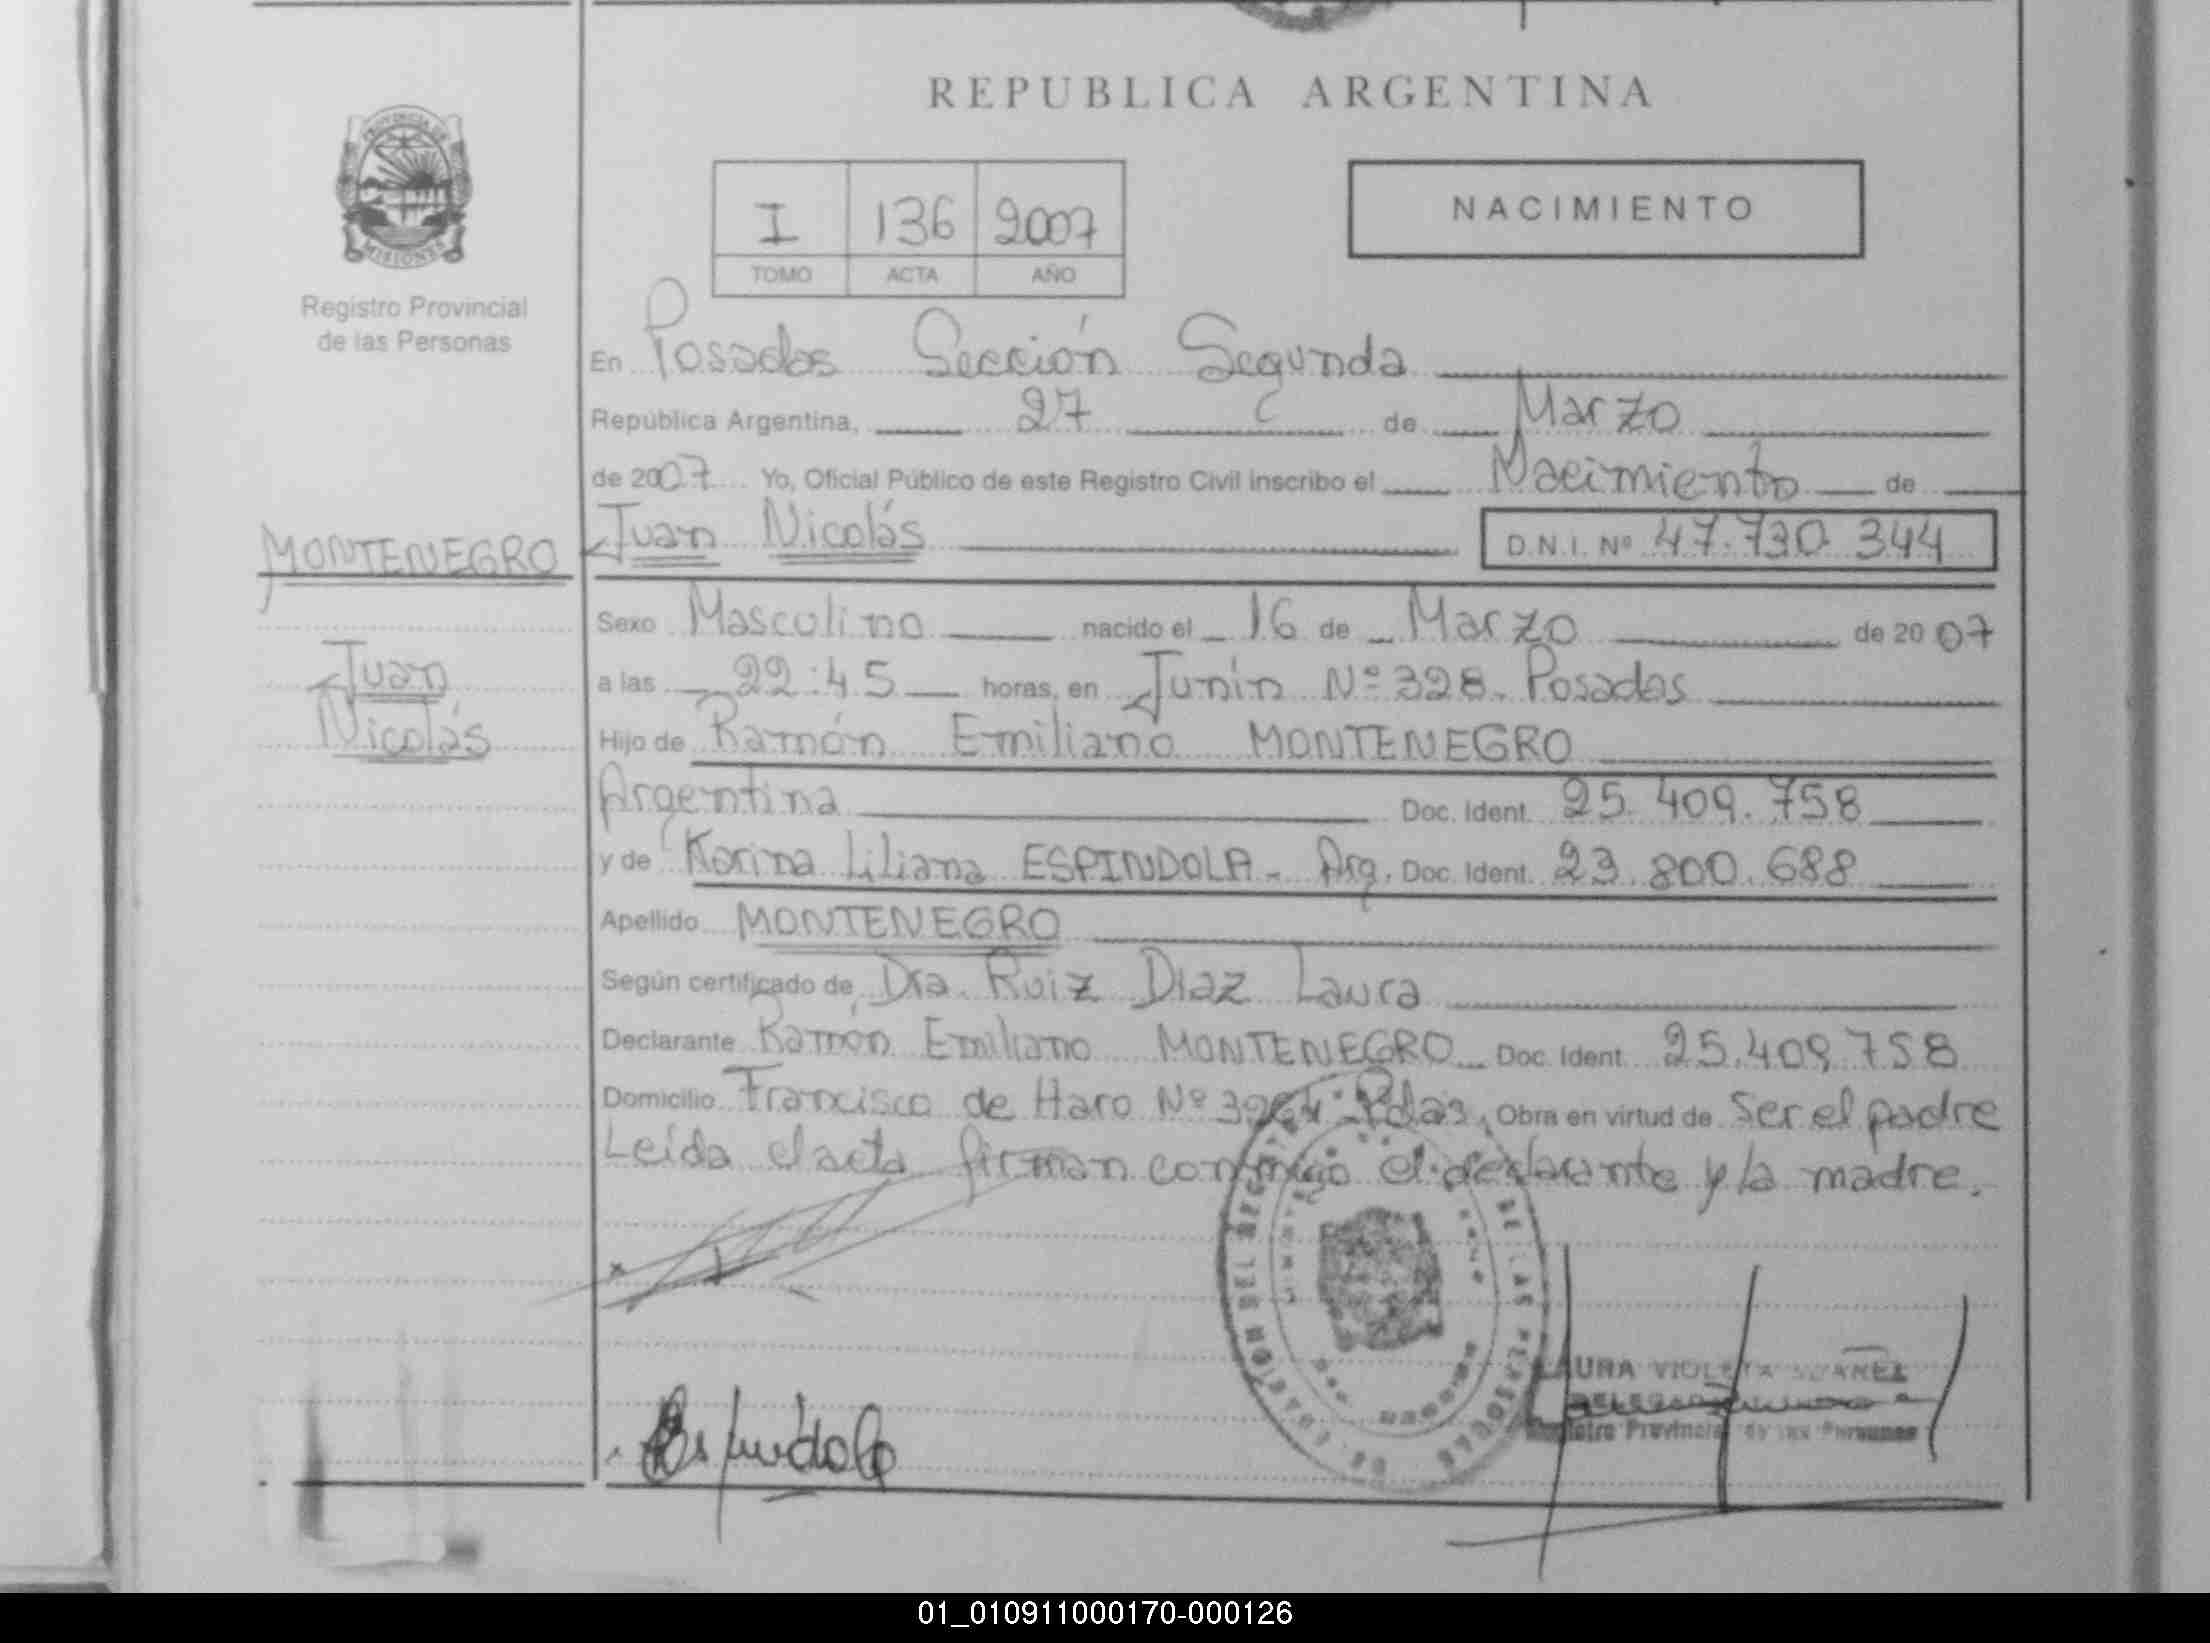 REPUBLICA ARGENTINA
PROVINCIA DE
MISIONES
Registro Provincial
de las Personas
I 136 2007
TOMO ACTA AÑO
NACIMIENTO
En Posadas Sección Segunda
República Argentina, 27 de Marzo
de 2007 Yo, Oficial Público de este Registro Civil inscribo el Nacimiento de
MONTENEGRO
Juan
Nicolás
Juan Nicolás D.N.I. Nº 47.730.344
Sexo Masculino nacido el 16 de Marzo de 2007
a las 22:45 horas, en Junín Nº 328. Posadas
Hijo de Ramón Emiliano MONTENEGRO
Argentina Doc. Ident. 25.409.758
y de Karina Liliana ESPINDOLA - Arg. Doc. Ident. 23.800.688
Apellido MONTENEGRO
Según certificado de Dra. Ruiz Diaz Laura
Declarante Ramón Emiliano MONTENEGRO Doc. Ident. 25.409.758
Domicilio Francisco de Haro Nº Pdas, Obra en virtud de ser el padre
Leída el acta firman conmigo el declarante y la madre.
DE LAS PERSONAS
LAURA VIOLETA
Registro Provincial de las Personas
Espíndola
01_010911000170-000126